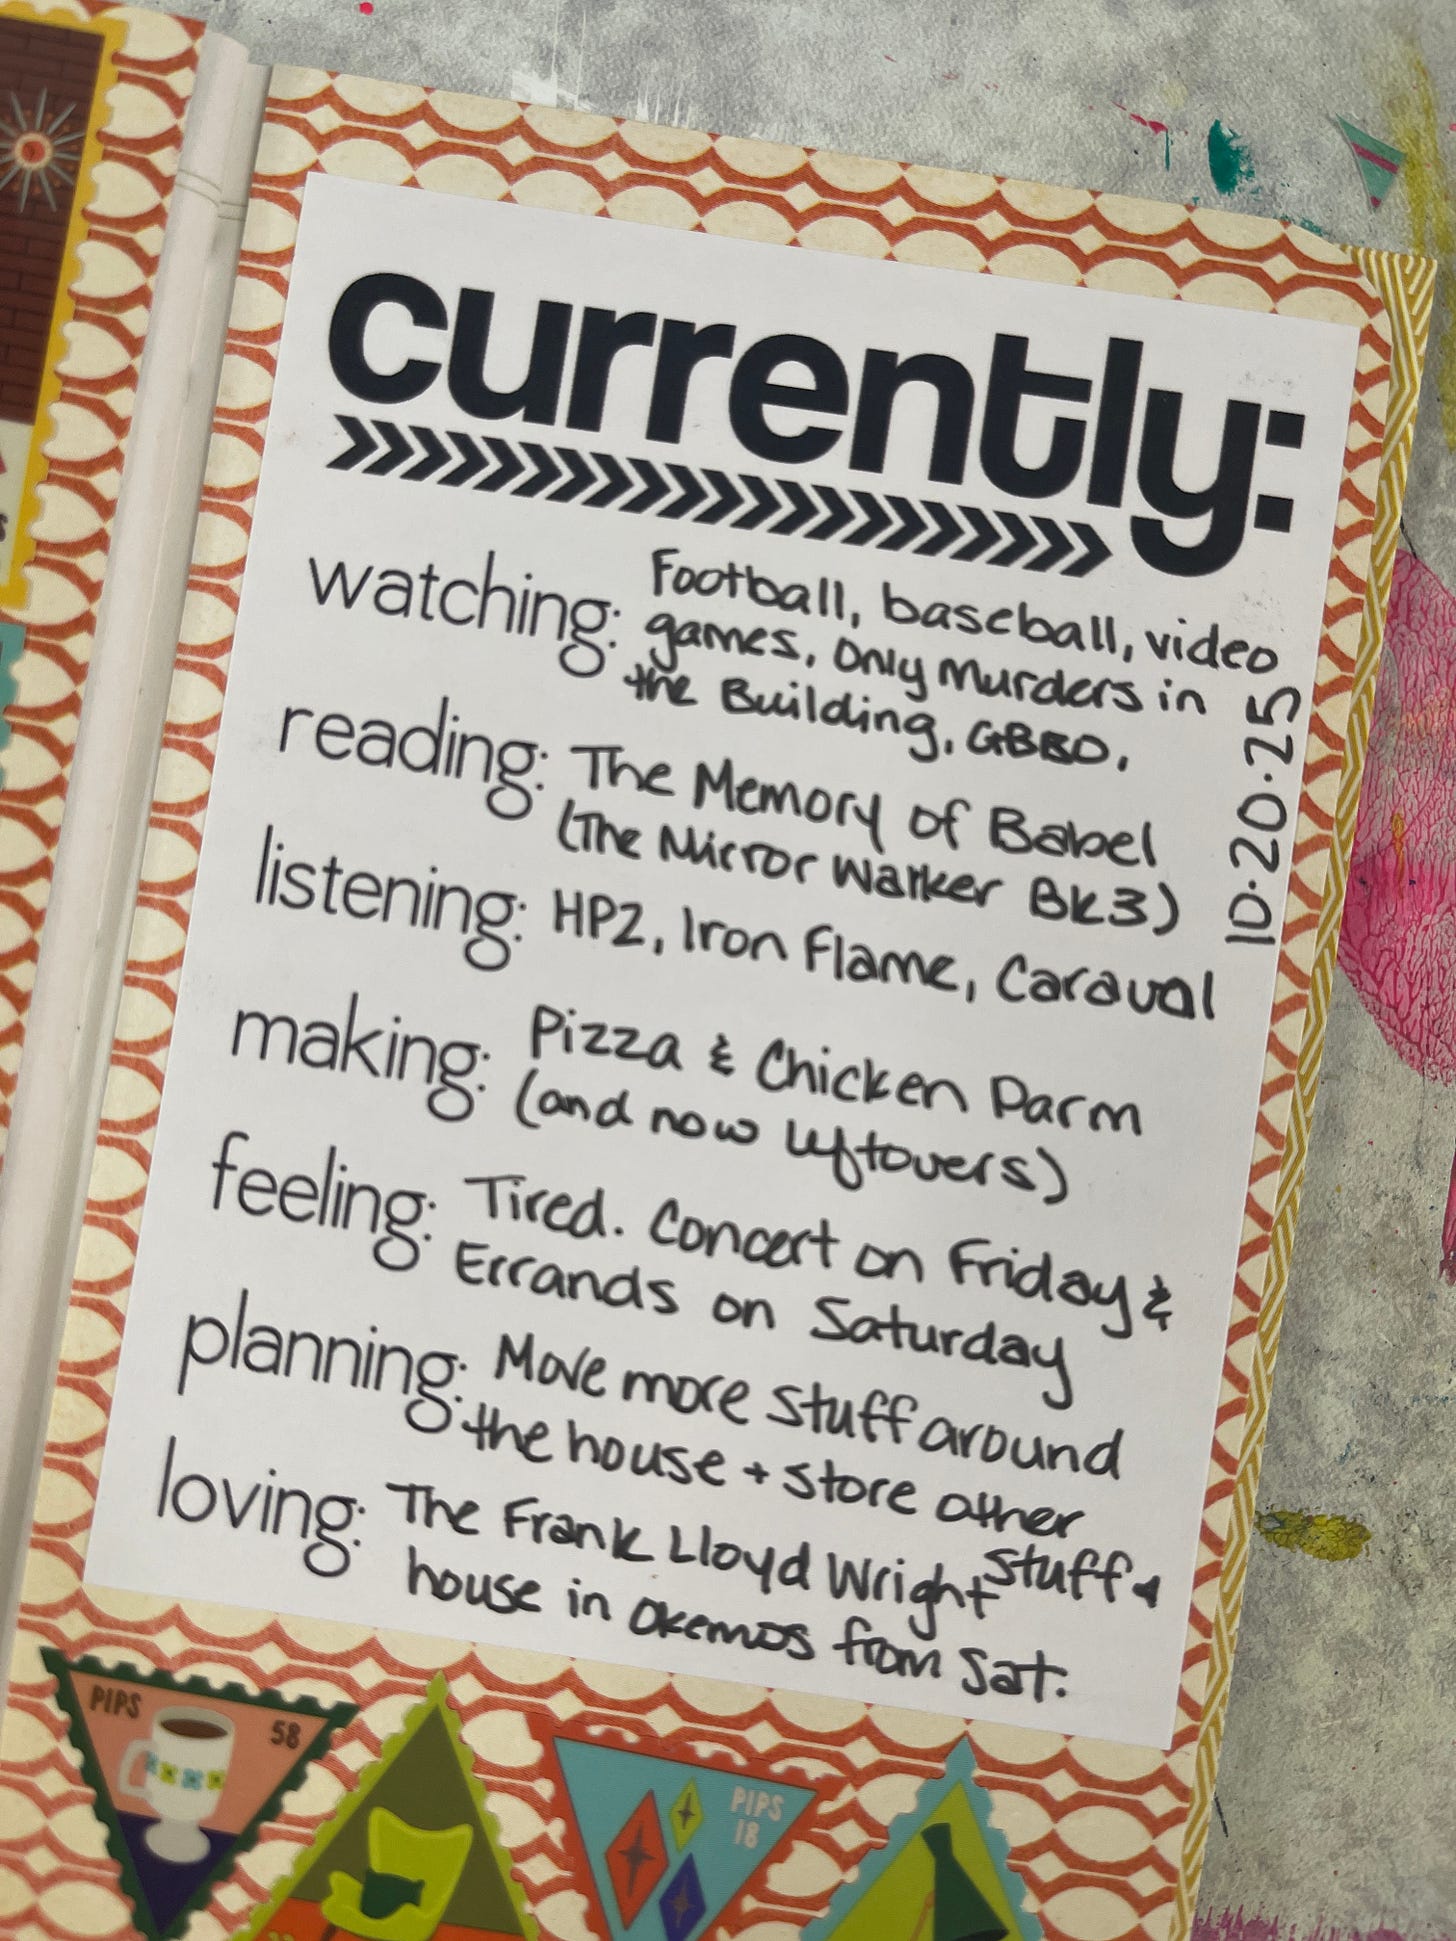 currently:
watching: Football, baseball, video
games, Only Murders in
the Building, GBBO,
reading: The Memory of Babel
(The Mirror Walker Bk3)
listening: HP2, Iron Flame, Caraval
making: Pizza & Chicken Parm
(and now leftovers)
feeling: Tired. Concert on Friday &
Errands on Saturday
planning: Move more stuff around
the house + store other
stuff
loving: The Frank Lloyd Wright
house in Okemos from Sat.
10.20.25
PIPS
58
PIPS
18